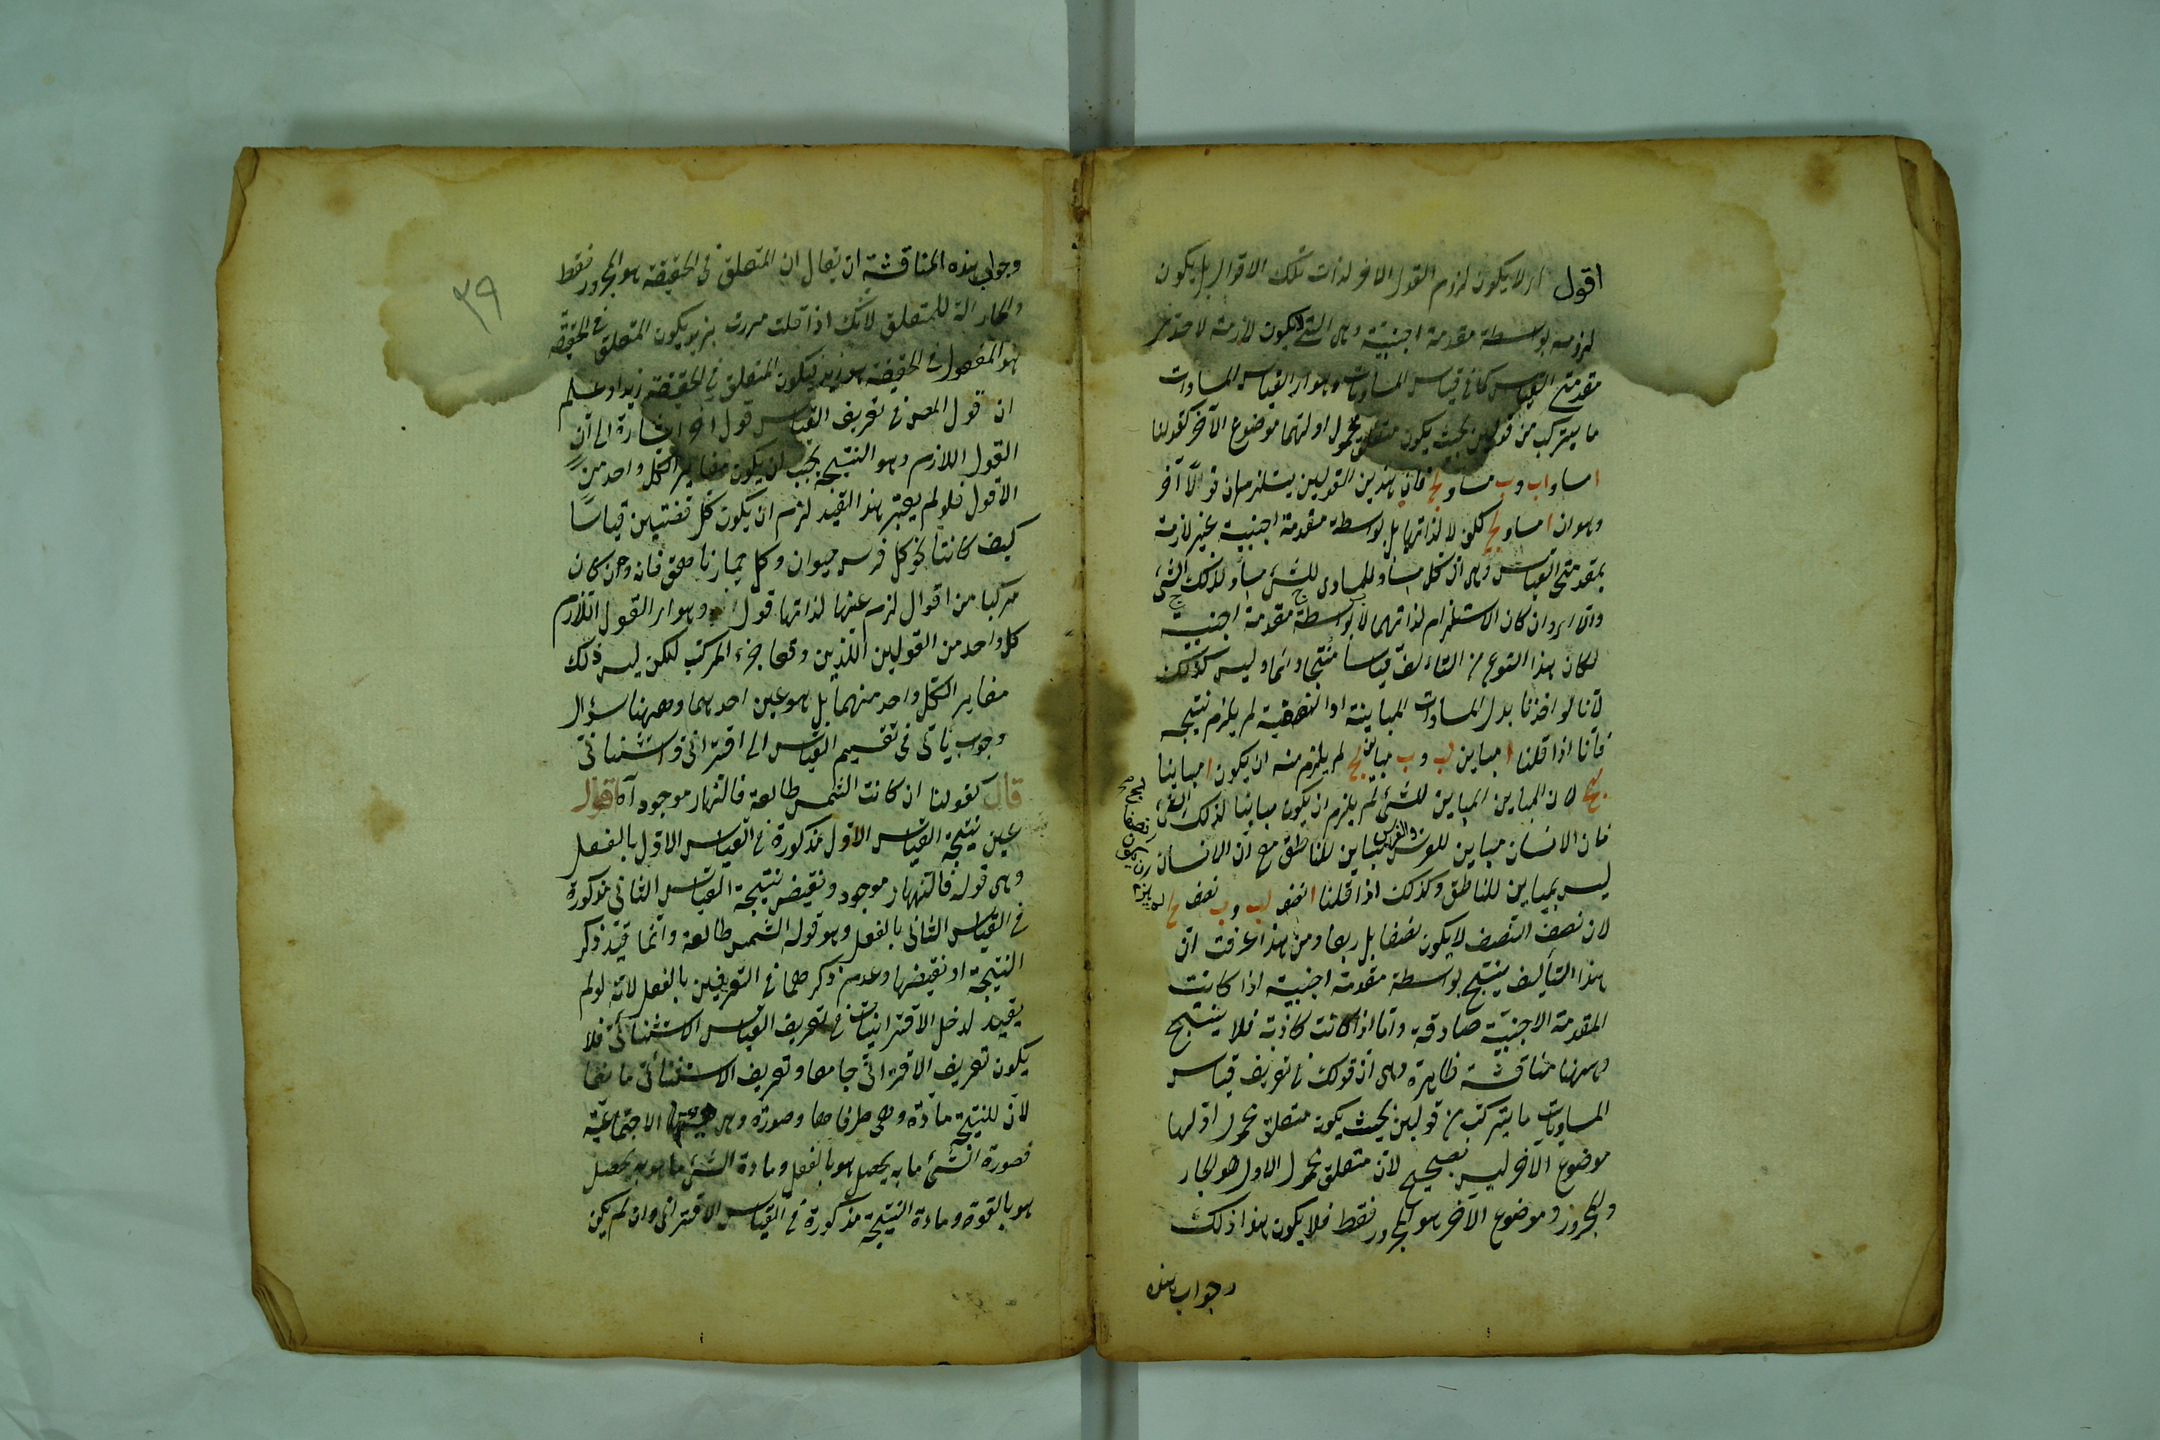 اقول اى لا يكون لزوم القول الآخر لذات تلك الاقوال بل يكون
لزومه بواسطة مقدمة اجنبية وهى التى لا يكون لازمة لاحدى
مقدمتى القياس كما فى قياس المساوات وهو اى القياس المساوات
ما يتركب من قولين بحيث يكون متعلق محمول اوليهما موضوع الآخر كقولنا
ا مساو لب وب مساو لج فان هذين القولين يستلزمان قولا آخر
وهو ان ا مساو لج لكن لا لذاتهما بل بواسطة مقدمة اجنبية غير لازمة
بمقدمتى القياس وهى ان كل مساو للمساوى للشئ مساو لذلك الشئ
والا اى وان كان الاستلزام لذاتهما لا بواسطة مقدمة اجنبية
لكان هذا النوع من التاليف قياسا منتجا دائما وليس كذلك
لانا لو اخذنا بدل المساوات المباينة او النصفية لم يلزم نتيجه
فانا اذا قلنا ا مباين لب وب مباين لج لم يلزم منه ان يكون ا مباينا
لج لان المباين المباين للشئ لم يلزم ان يكون مباينا لذلك الشئ
فان الانسان مباين للفرس والفرس مباين للناطق مع ان الانسان
ليس بمباين للناطق وكذلك اذا قلنا ا نصف لب وب نصف لج
لان نصف النصف لا يكون نصفا بل ربعا ومن هذا عرفت ان
هذا التأليف ينتج بواسطة مقدمة اجنبية اذا كانت
المقدمة الاجنبية صادقة واما اذا كانت كاذبة فلا ينتج
وههنا مناقشة ظاهرة وهى ان قولك فى تعريف قياس
المساويات ما يتركب من قولين بحيث يكون متعلق محمول اولها
موضوع الآخر ليس بصحيح لان متعلق محمول الاول هو الجار
والمجرور وموضوع الآخر هو المجرور فقط فلا يكون هذا ذلك
وجواب هذه
٣٩
وجواب هذه المناقشة ان يقال ان المتعلق فى الحقيقة هو المجرور فقط
والجار آلة للمتعلق لانك اذا قلت مررت بزيد يكون المتعلق فى الحقيقة
هو المفعول فى الحقيقة هو زيد فيكون المتعلق فى الحقيقة زيدا وعلم
ان قول المص فى تعريف القياس قول آخر اشارة الى ان
القول اللازم وهو النتيجة يجب ان يكون مغايرا لكل واحد من
الاقوال فلو لم يعتبر هذا القيد لزم ان يكون كل قضيتين قياسًا
كيف كانتا نحو كل فرس حيوان وكل حمار ناهق فانه وان كان
مركبا من اقوال لزم عنها لذاتها قول وهو اى القول اللازم
كل واحد من القولين اللذين وقعا جزء المركب لكن ليس ذلك
مغايرا لكل واحد منهما بل هو عين احدهما وههنا سؤال
وجواب يأتى فى تقسيم القياس الى اقترانى واستثنائى
قال كقولنا ان كانت الشمس طالعة فالنهار موجود آه اقول
عين نتيجة القياس الاول مذكورة فى القياس الاول بالفعل
وهى قوله فالنهار موجود ونقيض نتيجة القياس الثانى مذكورة
فى القياس الثانى بالفعل وهو قوله الشمس طالعة وانما قيد ذكر
النتيجة او نقيضها وعدم ذكرهما فى التعريفين بالفعل لانه لو لم
يقيد لدخل الاقترانيات فى تعريف القياس الاستثنائى فلا
يكون تعريف الاقترانى جامعا وتعريف الاستثنائى مانعا
لان للنتيجة مادة وهى طرفاها وصورة وهى هيئتها الاجتماعية
فصورة الشئ ما به يحصل هو بالفعل ومادة الشئ ما هو به يحصل
هو بالقوة ومادة النتيجة مذكورة فى القياس الاقترانى وان لم يكن